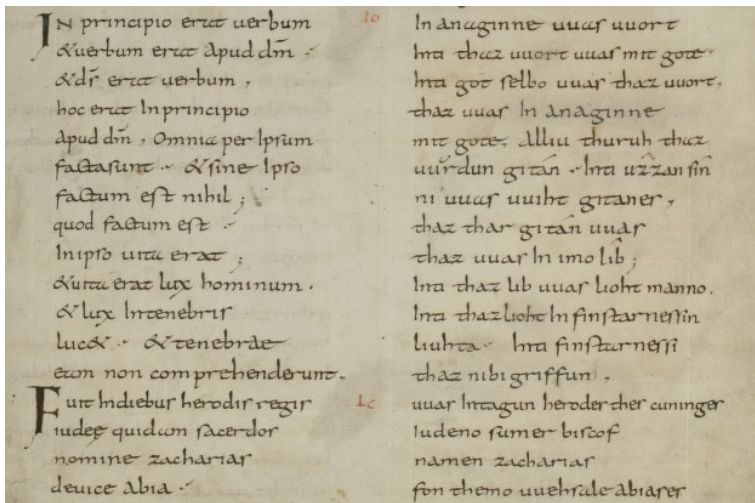 IN principio erat uerbum
&uerbum erat apud dm̅ ·
&ds̅ erat uerbum,
hoc erat In principio
apud dm̅, Omnia per Ipsum
facta sunt · & sine Ipso
factum est nihil;
quod factum est ·
In ipso uita erat;
&uita erat lux hominum.
& lux In tenebris
luc& · & tenebrae
eam non comprehenderunt.
Fuit In diebus herodis regis
iudeę quidam sacerdos
nomine zacharias
de uice abia ·
Io
In anaginne uuas uuort
Inti thaz uuort uuas mit gote.
Inti got selbo uuas thaz uuort,
thaz uuas In anaginne
mit gote. alliu thuruh thaz
uurdun gitán · Inti ûzzan sîn
ni uuas uuiht gitanes,
thaz thar gitân uuas
thaz uuas In imo lîb;
Inti thaz lib uuas lioht manno.
Inti thaz lioht In finstarnessin
liuhta · Inti finstarnessi
thaz ni bigriffun,
Lc
uuas In tagun herodes thes cuninges
Iudeno sumer biscof
namen zacharias
fon themo uuehsale abiases